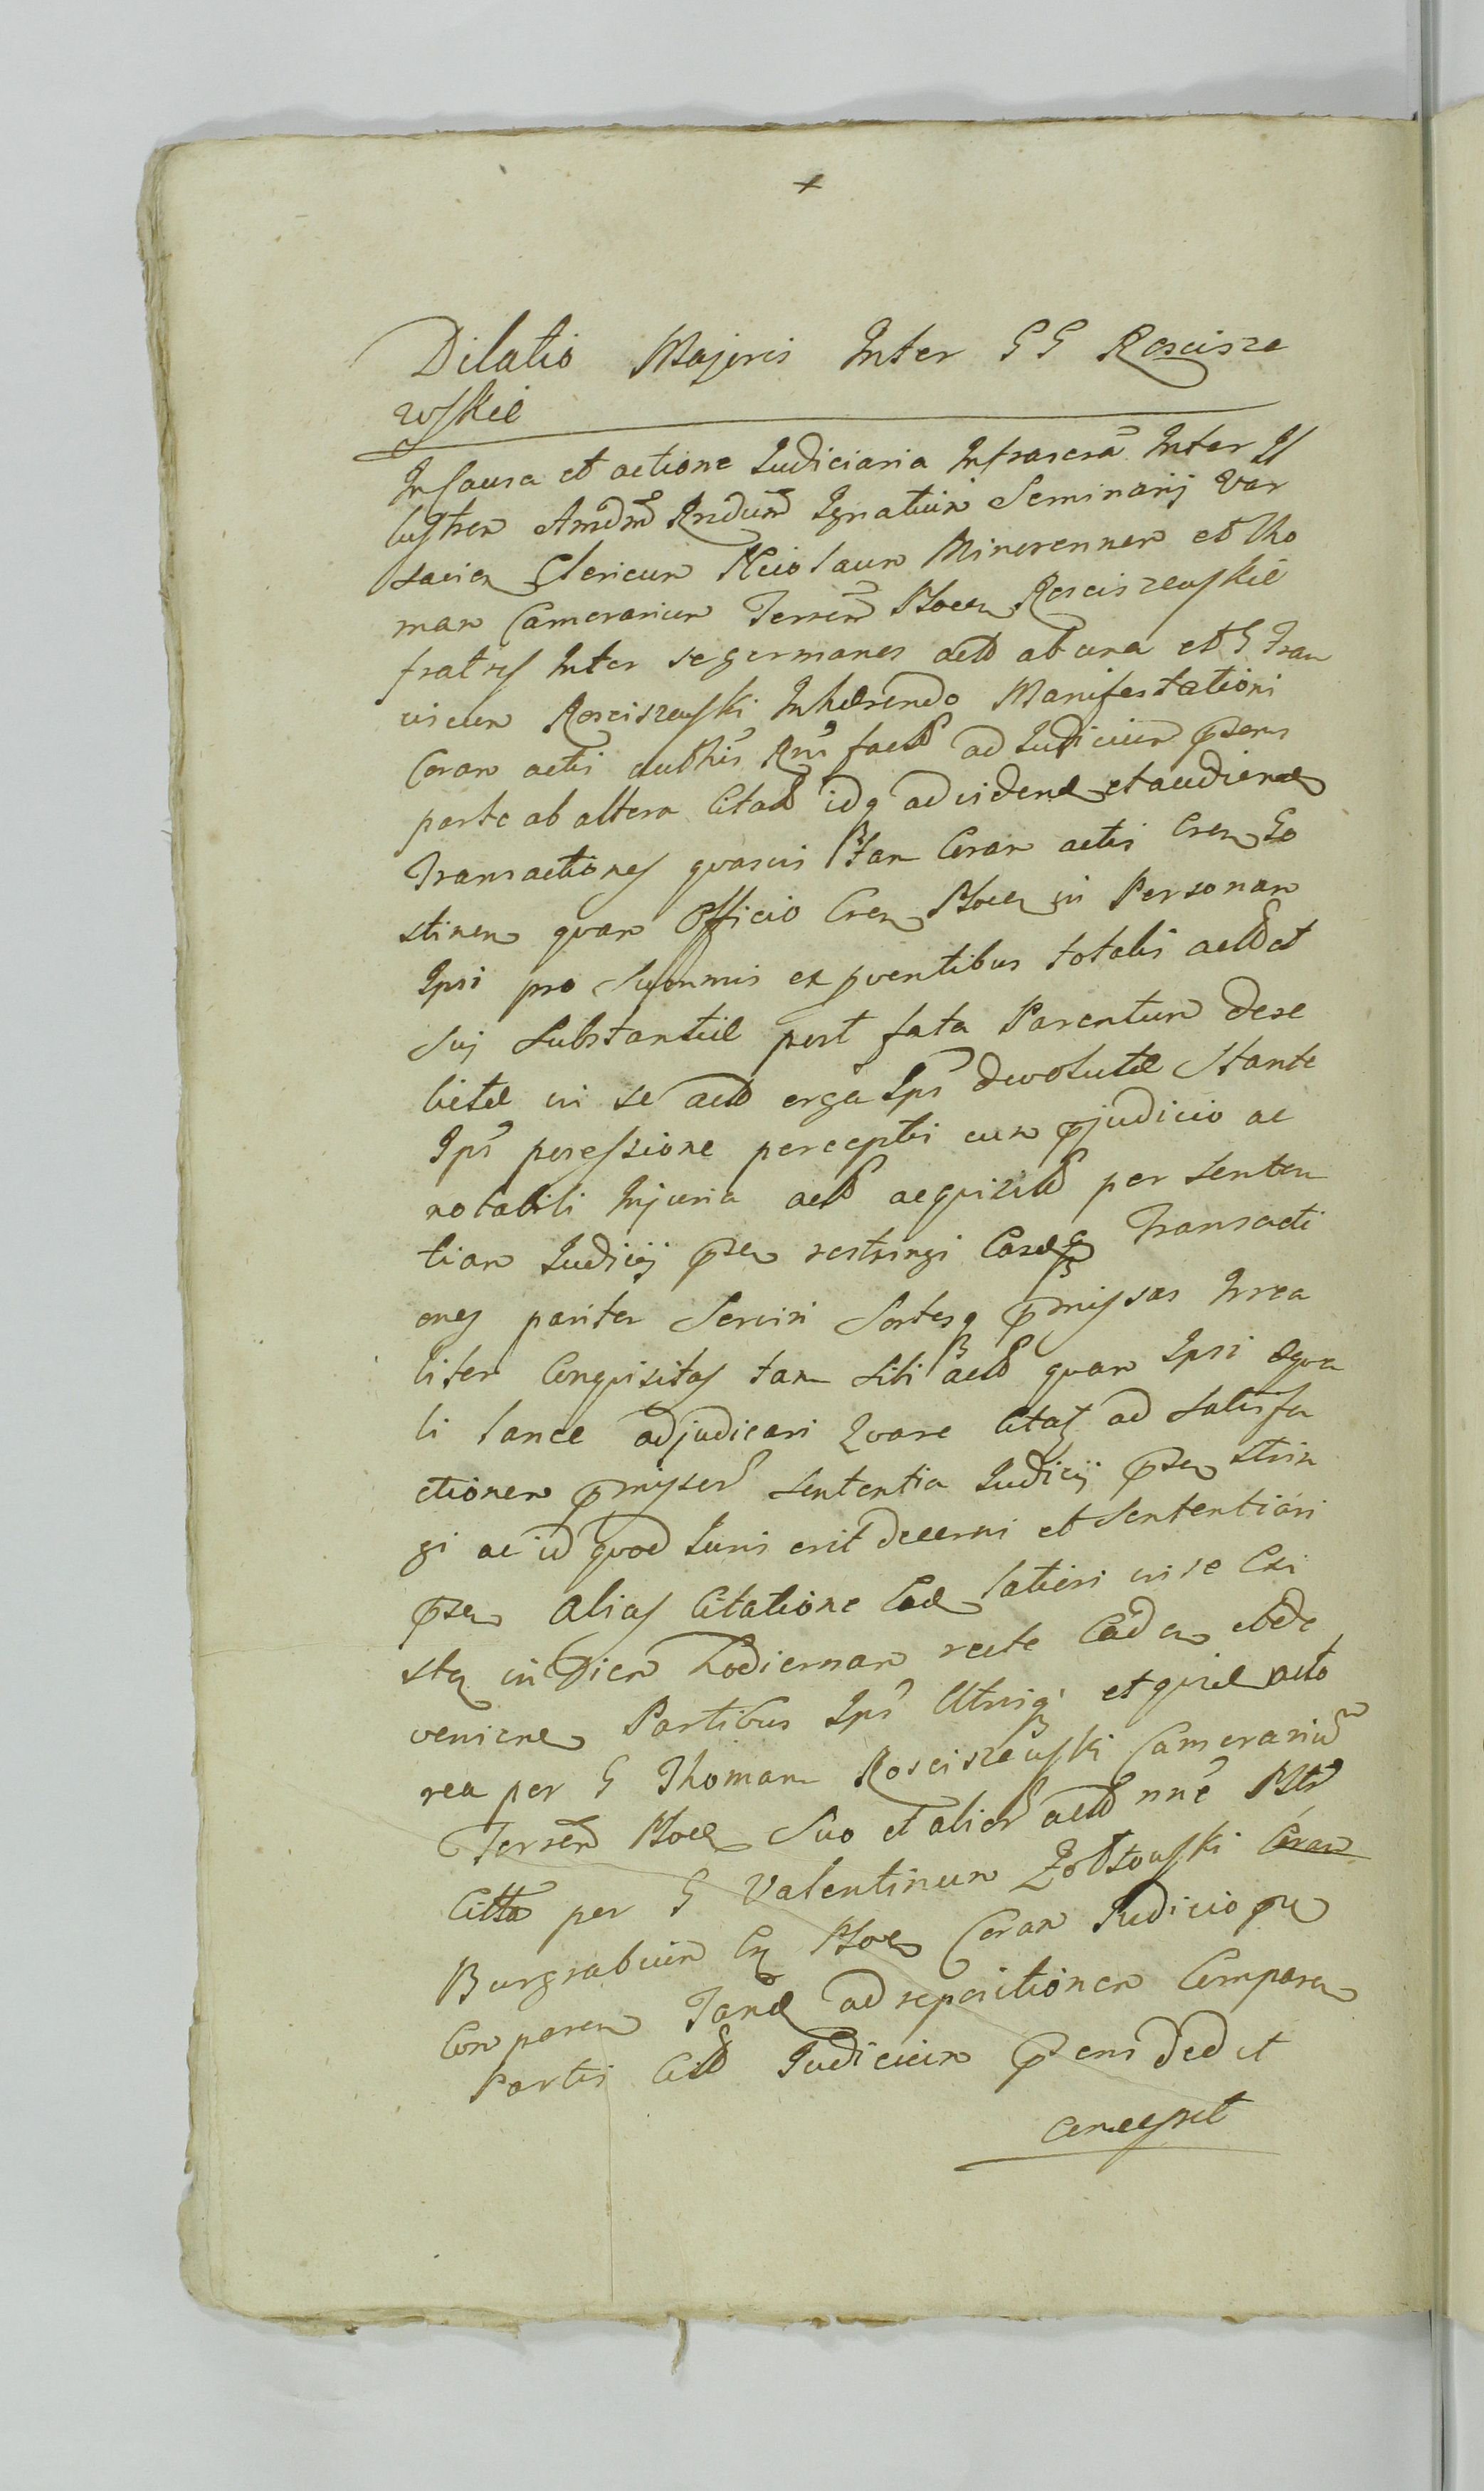 Dilatio Majoris Inter GG Roscisze
wskie
In Causa et actione Judiciaria Infrascra Inter Il
lustren Amdm Rndum Ignatium Seminarij Var
savien Clericum Nicolaum Minorennem et Tho
mam Camerarium Terren Plocen Rosciszewskie
fratres Inter se germanos act ab una et G Fran
ciscum Rosciszewski Inhærendo Manifestationi
Coram actis authis Rnis fact ad Judicium præsens
parte ab altera Citat idq ad vidend et audiend
Transactiones quasvis tam Coram actis Cren Go
stinen quam Officio Cren Plocen in Personam
Ipsi pro Summis ex proventibus totalis act et
Suj Substantiæ post fata Parentum dere
lictæ in se act erga Ips devolutæ Stante
Ips possessione perceptis cum præjudicio ac
notabili Injuria act acquisit per senten
tiam Judicij præsen restringi Easdq Transacti
ones pariter Serviri Sortesq præmissas Irrea
liter Conquisitas tam sibi act quam Ipsi æqua
li lance adjudicari Quare Citatq ad satisfa
ctionem præmissor sententia Judicij præsen strin
gi ac id quod Juris erit decerni et sententiari
præsen Alias Citatione Ead latiori in se Exi
sten in Diem hodiernam recte Caden et de
venien Partibus Ips Utrisq et quidem acto
rea per G Thomam Rosciszewski Camerarium
Terren Plocen Suo et alior act nne Pltr
Citta per G Valentinum Zoltowski Coram
Burgrabium Cn Plocen Coram Judicio præ
Comparen Tand ad repositionem Comparen
Partis Citt Judicium præsens dedit
concessit